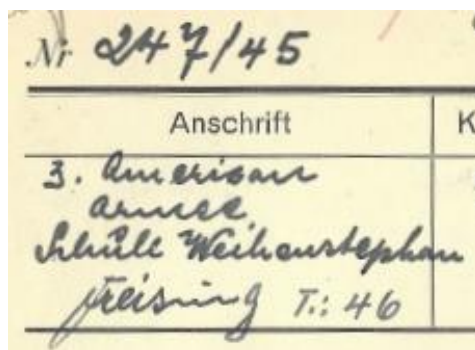 Nr 247/45
Anschrift
3. American
Armee
Schule Weihenstephan
Freising T.: 46